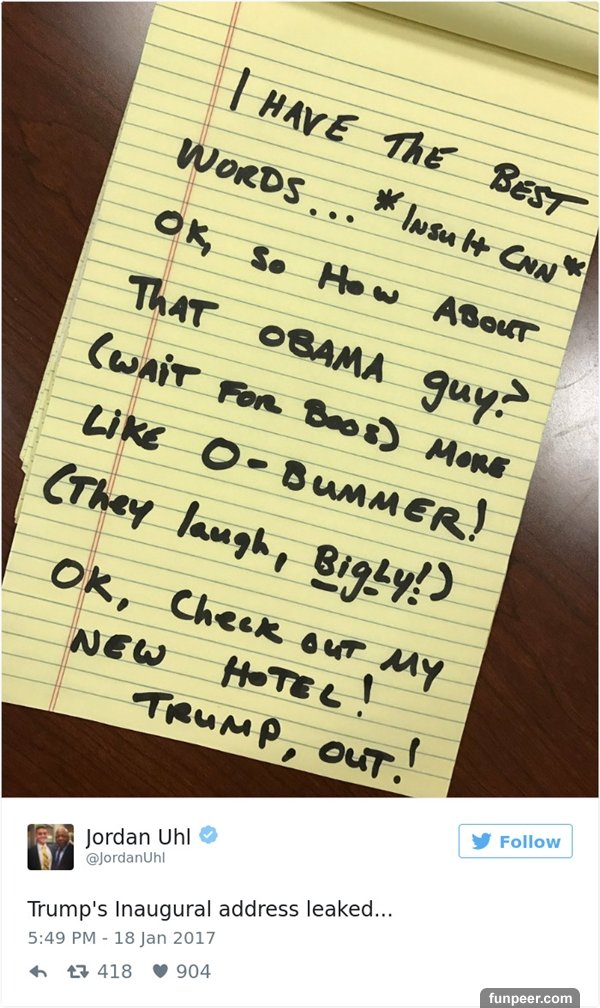 I HAVE THE BEST
WORDS... *INSULT CNN*
OK, SO HOW ABOUT
THAT OBAMA GUY?
(WAIT FOR BOOS) MORE
LIKE O-BUMMER!
(They laugh, BigLy!)
OK, Check OUT MY
NEW HOTEL!
TRUMP, OUT!
Jordan Uhl
@JordanUhl
Follow
Trump's Inaugural address leaked...
5:49 PM - 18 Jan 2017
418 904
funpeer.com